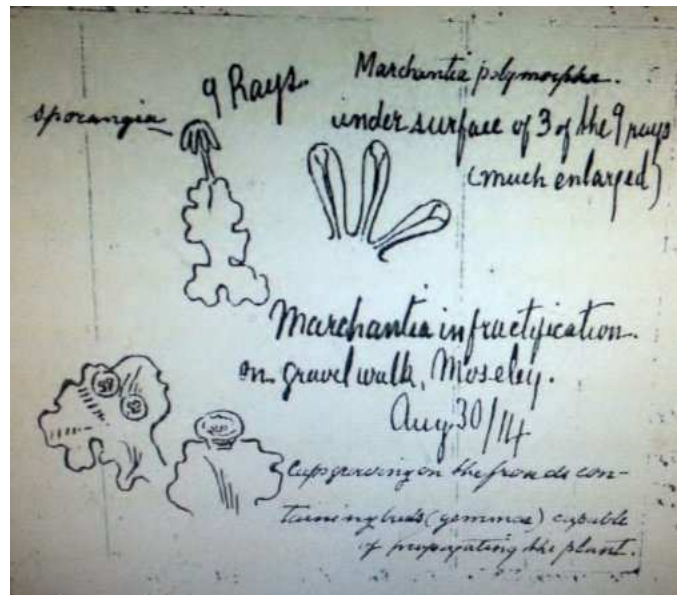 9 Rays.
sporangia
Marchantia polymorpha.
under surface of 3 of the 9 rays
(much enlarged)
Marchantia in fructification
on gravel walk, Moseley.
Aug 30/14
Cups growing on the fronds con-
taining buds (gemmae) capable
of propagating the plant.